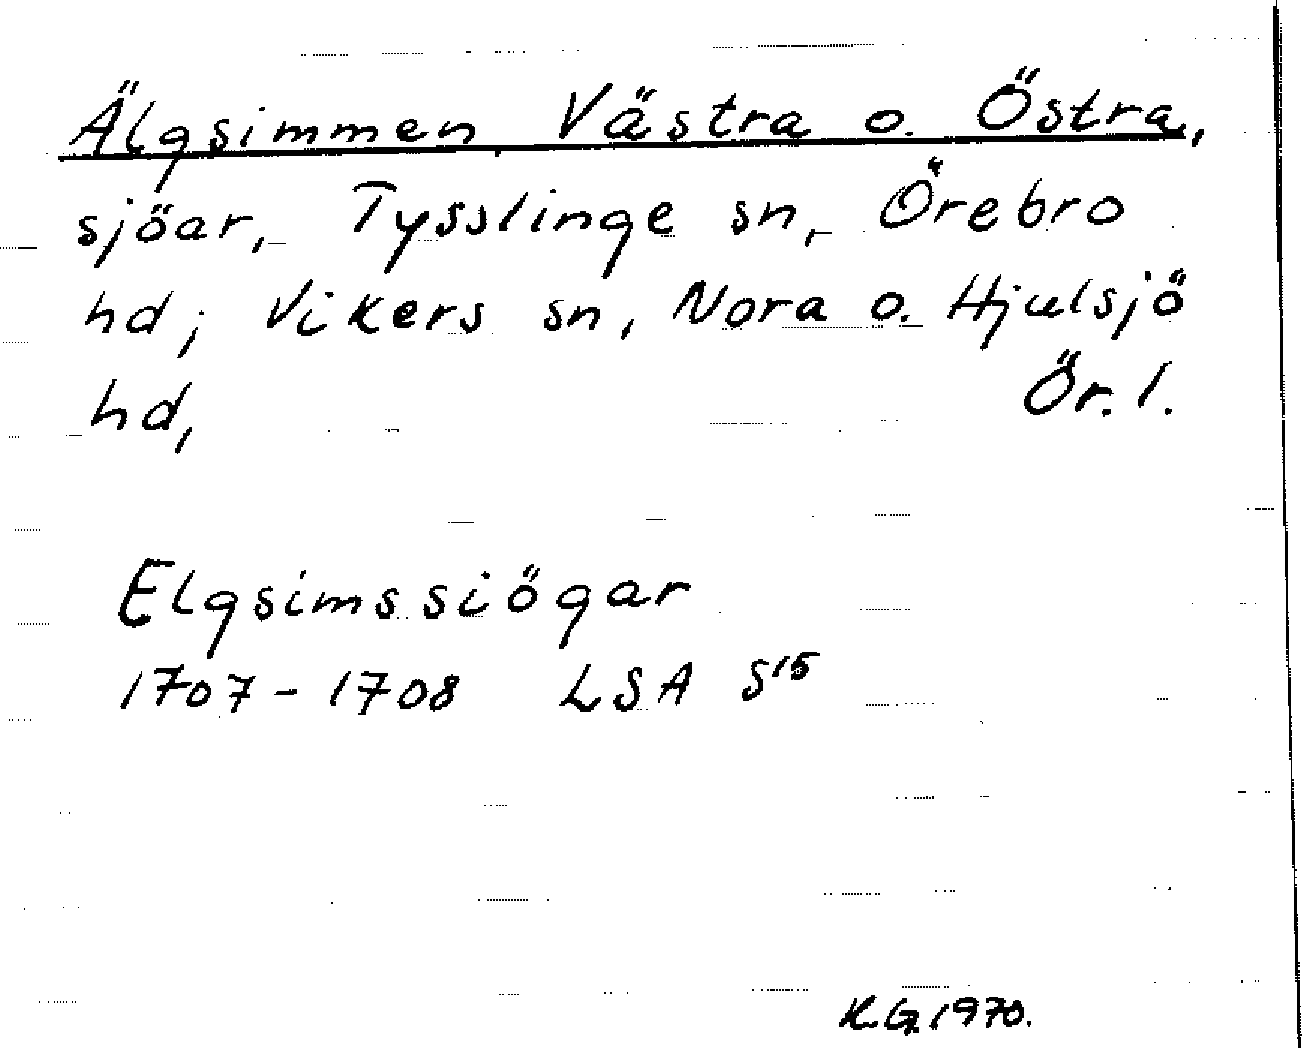 Älgsimmen, Västra o. Östra,
sjöar, Tysslinge sn, Örebro
hd; Vikers sn, Nora o. Hjulsjö
hd, Ör. l.
Elgsimssiögar
1707-1708 LSA S15
K.G. 1970.